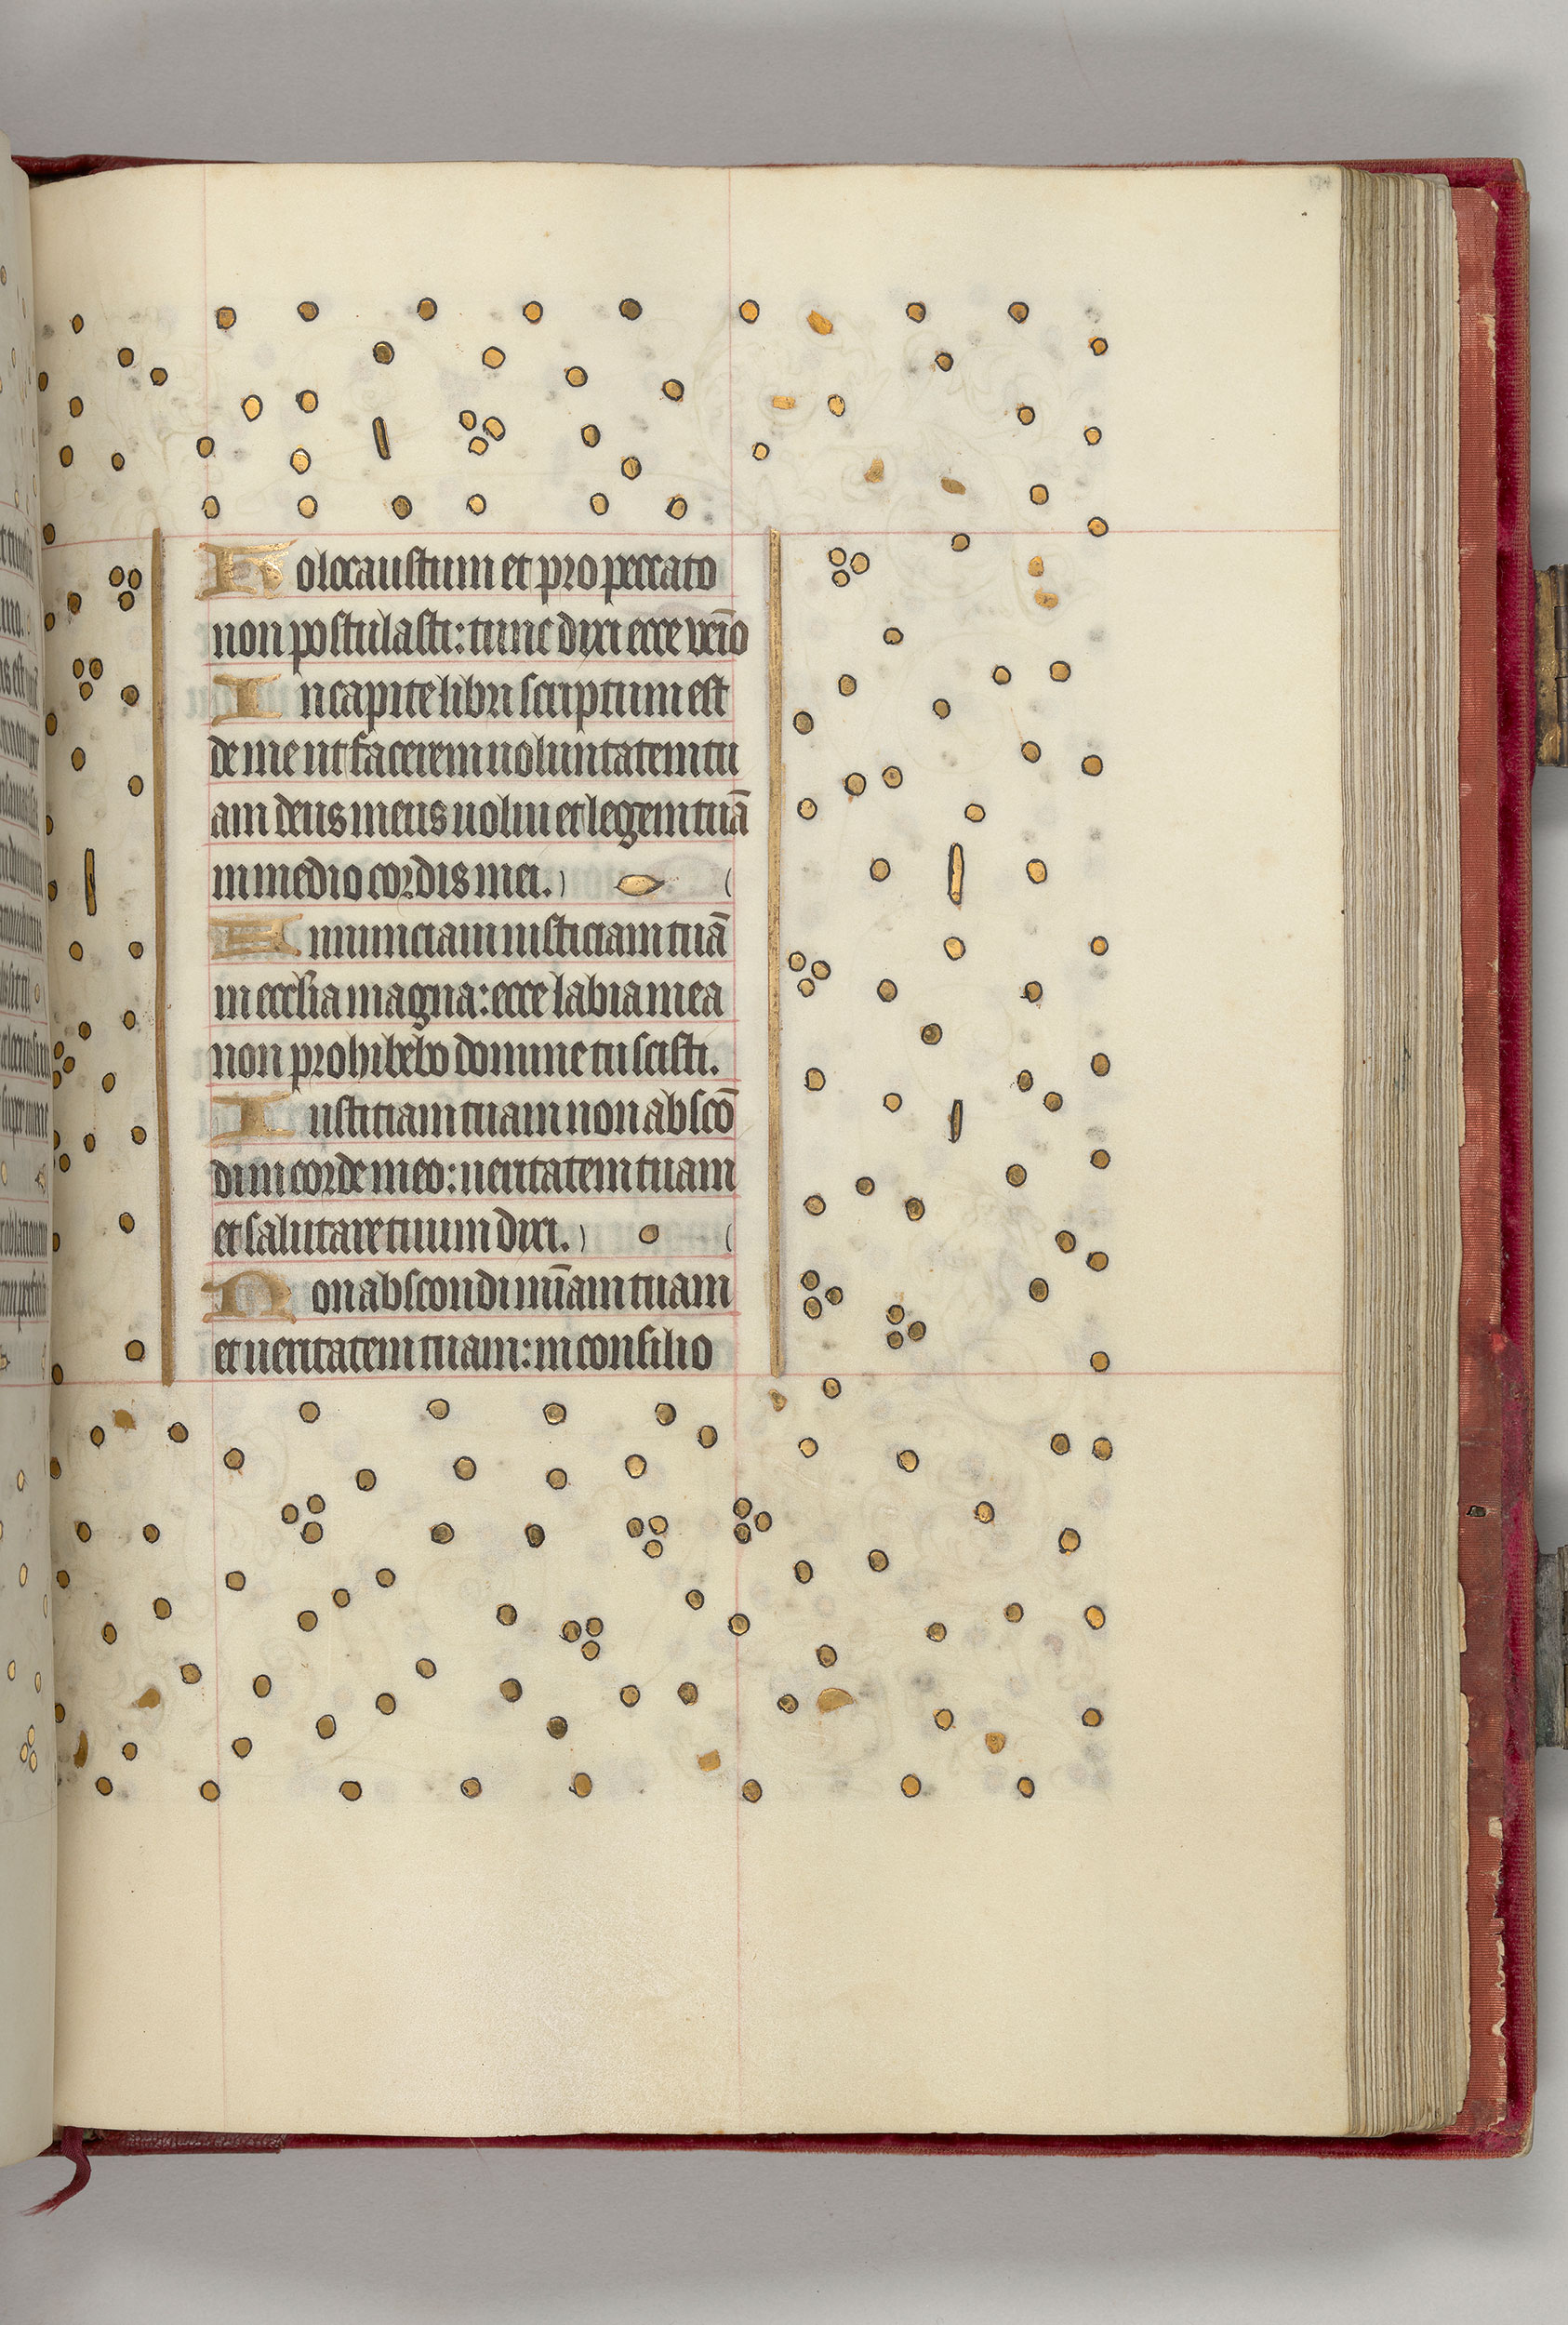 Holocaustum et pro peccato
non postulasti: tunc dixi ecce veīo
In capite libri scriptum est
de me ut facerem uoluntatem tu
am deus meus uolui et legem tuā
in medio cordis mei.
Annunciaui iusticiam tuā
in eccl'ia magna: ecce labia mea
non prohibebo domine tu scisti.
Iusticiam tuam non abscō
di in corde meo: ueritatem tuam
et salutare tuum dixi.
Non abscondi mīam tuam
et ueritatem tuam: in consilio